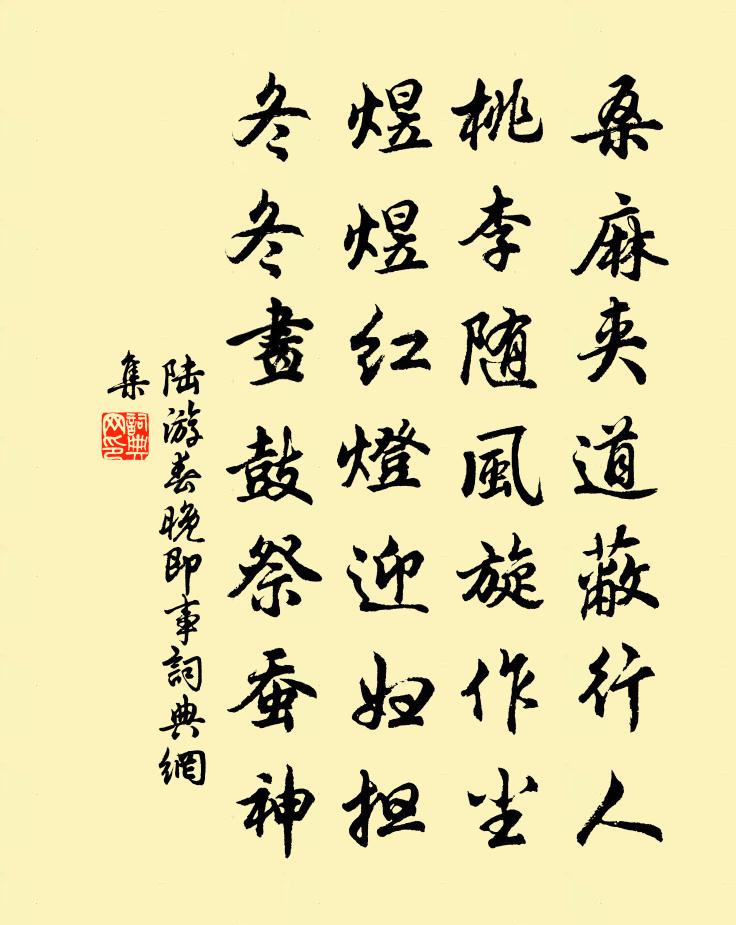 桑麻夹道蔽行人
桃李随風旋作尘
煜煜红燈迎妇担
冬冬畫鼓祭蚕神
陆游春晚即事詞典網
集
詞典网印